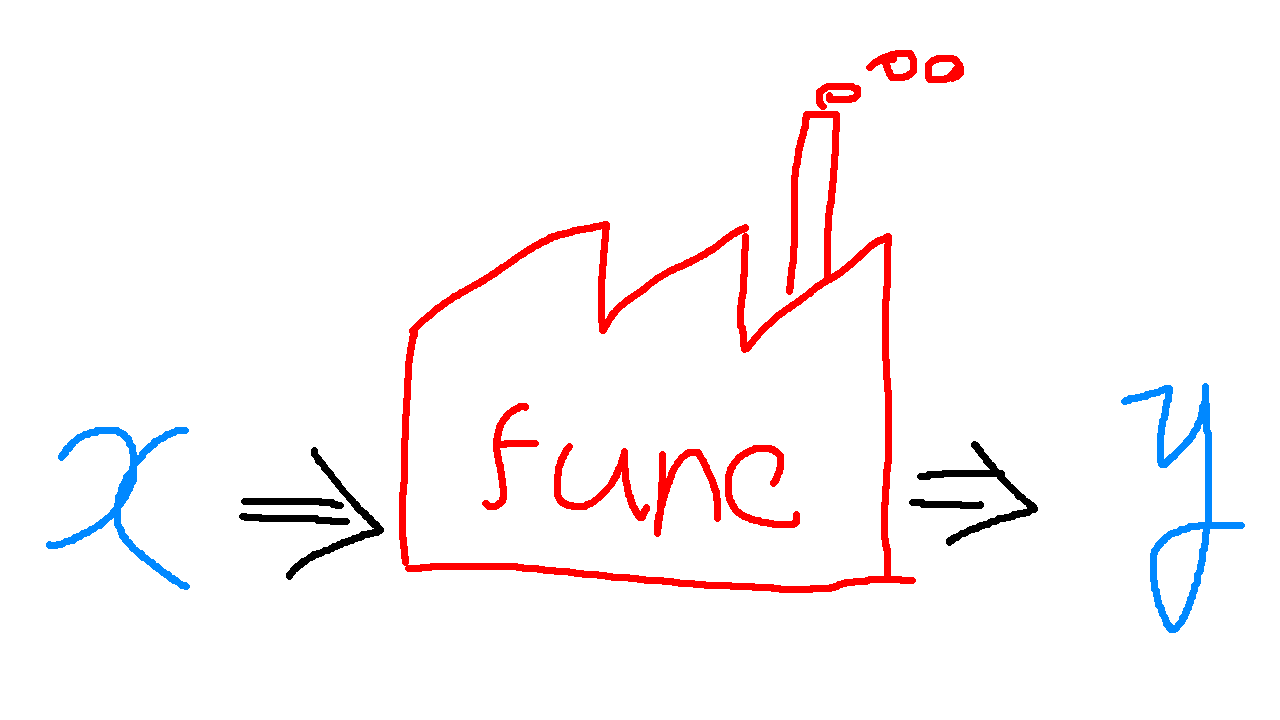 x ⇒ func ⇒ y